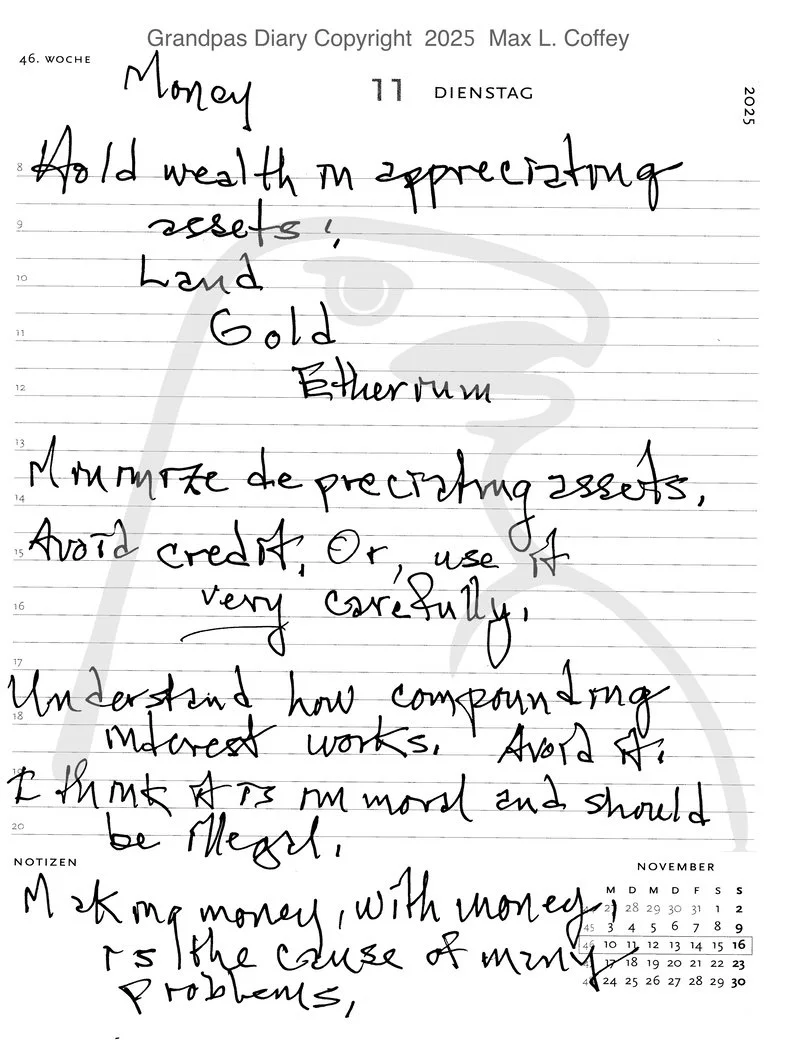 Grandpas Diary Copyright 2025 Max L. Coffey
46. WOCHE
Money
11 DIENSTAG
2025
8 Hold wealth in appreciating
9 assets:
10 Land
11 Gold
12 Etherium
13
Minimize depreciating assets.
14
15 Avoid credit. Or, use it
16 very carefully.
17
Understand how compounding
18
interest works. Avoid it.
19
I think it is immoral and should
20 be illegal.
NOTIZEN
NOVEMBER
M D M D F S S
44 27 28 29 30 31 1 2
45 3 4 5 6 7 8 9
46 10 11 12 13 14 15 16
47 17 18 19 20 21 22 23
48 24 25 26 27 28 29 30
Making money, with money,
is the cause of many
problems.